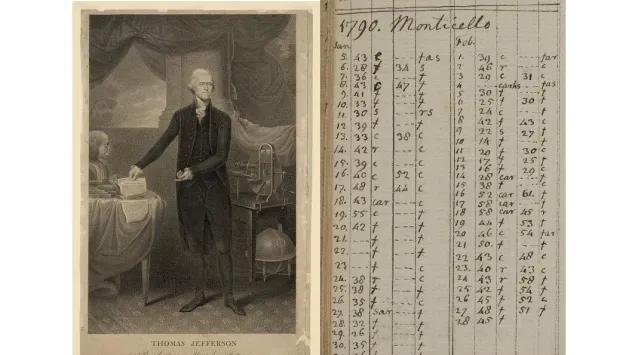 THOMAS JEFFERSON
1790. Monticello.
Jan
5. 43 c --- tas
6. 28 f 34 s
7. 36 c --- f
8. 43 c 47 f
9. 41 f --- f
10. 33 f --- f
11. 30 s --- rs
12. 39 f --- f
13. 33 c 38 c
14. 42 r --- c
15. 39 c --- c
16. 40 c 52 c
17. 48 r 44 c
18. 43 car --- c
19. 55 c --- f
20. 42 f --- f
21. --- --- f
22. --- --- f
23. --- f --- c
24. 38 r --- c
25. 38 f --- f
26. 35 f --- c
27. 38 --- f
28. 32 --- f
29. 26 --- f
30. 35 --- f
Feb.
1. 39 c --- far
2. 46 r --- c
3. 29 c 31 c
4. --- --- tas
5. 30 f --- f
6. 25 f 30 f
7. 24 c --- f
8. 42 f 43 c
9. 22 s 27 f
10. 14 f --- f
11. 20 f 30 c
12. 17 f 25 f
13. 16 f 29 c
14. 28 car --- f
15. 38 f --- c
16. 52 car f
17. 58 car --- f
18. 58 car 45 r
19. 44 f 53 f
20. 46 c 54 far
21. 50 f --- f
22. 43 c 48 c
23. 40 r 43 c
24. 43 r 58 f
25. 42 f 54 f
26. 45 f 52 c
27. 48 f 51 f
28. 45 f